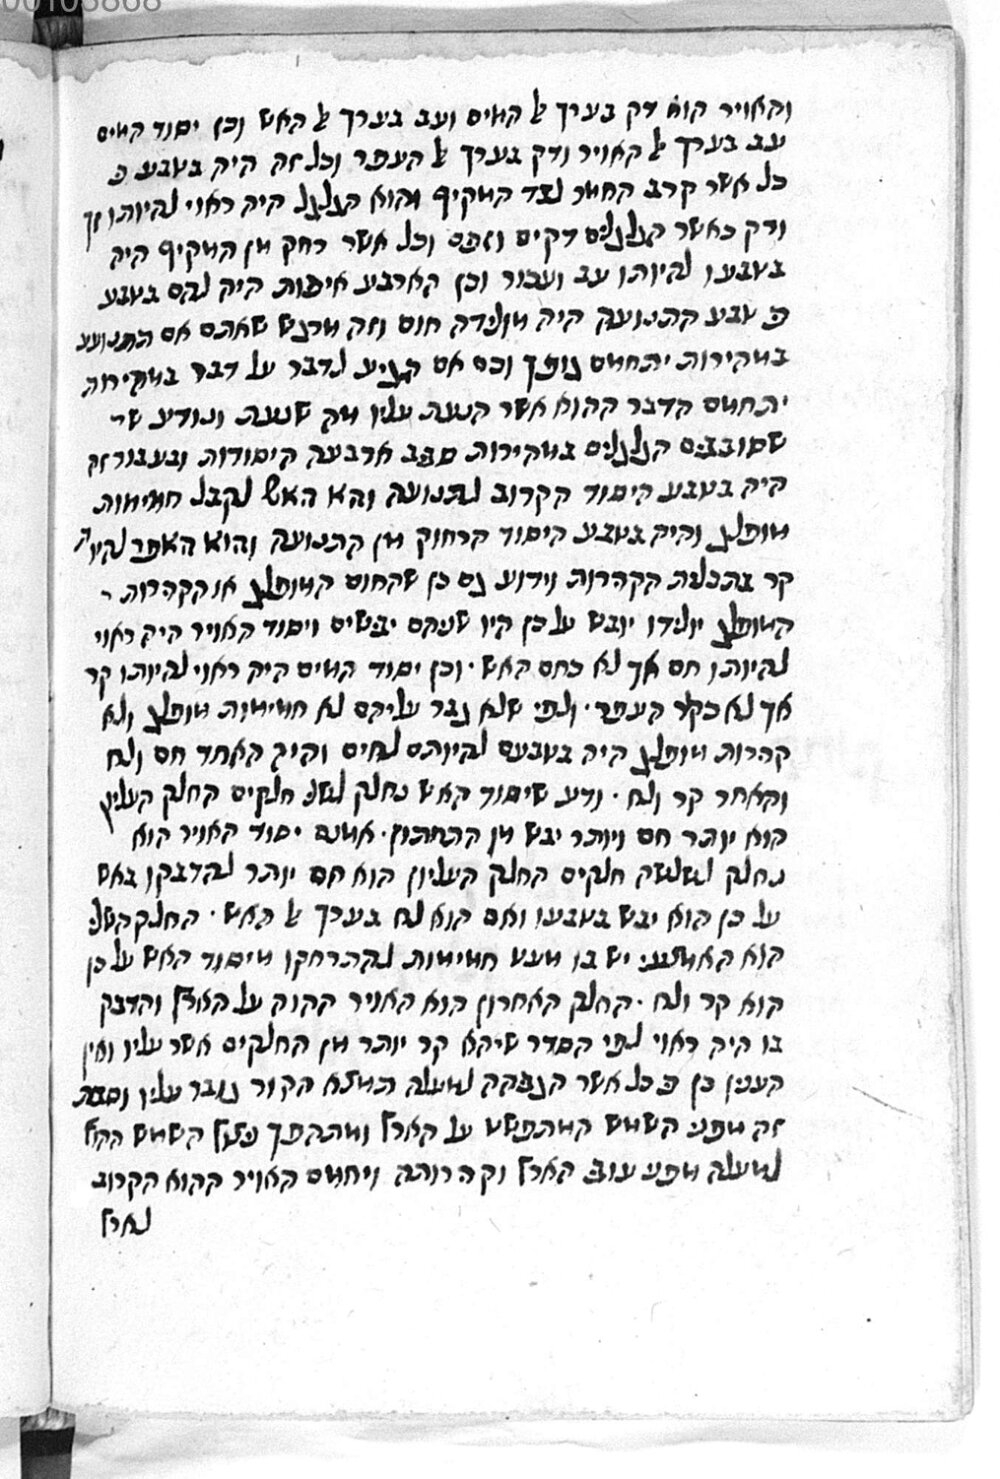 00105868
והאויר הוא דק בערך אל המים ועב בערך אל האש וכן יסוד המים
עב בערך אל האויר ודק בערך אל העפר וכל זה היה בטבע כי
כל אשר קרב החמר לצד המקיף והוא הגלגל היה ראוי להיותו זך
ודק כאשר הגלגלים דקים וזכים וכל אשר רחק מן המקיף היה
בטבעו להיותו עב ועכור וכן הארבע איכות היה להם בטבע
כי טבע התנועה היה מולידה חום וזה מרגש שאתם אם התנועע
במהירות יתחמם גופך וכם אם הגיע לדבר על דבר במהירות
יתחמם הדבר ההוא אשר הגעת עליו מה שנגעת ונודיע ש
שסובבים הגלגלים במהירות סביב ארבעה היסודות ובעבור זה
היה בטבע היסוד הקרוב לתנועה והוא האש לקבל חמימות
מופלג והיה בטבע היסוד הרחוק מן התנועה והוא העפר להיו'
קר בתכלית הקרירות וידוע גם כן שהחום המופלג או הקרירות
המופלג יולידו יובש על כן היו שניהם יבשים ויסוד האויר היה ראוי
להיותו חם אך לא כחם האש · וכן יסוד המים היה ראוי להיותו קר
אך לא כקר העפר · ולפי שלא גבר עליהם לא חמימות מופלג ולא
קרירות מופלג היה בטבעם להיותם לחים והיה האחד חם ולח
והאחר קר ולח · ודע שיסוד האש נחלק לשני חלקים החלק העליון
הוא יותר חם ויותר יבש מן התחתון · אמנם יסוד האויר הוא
נחלק לשלשה חלקים החלק העליון הוא חם יותר להדבקו באש
על כן הוא יבש בטבעו ואם הוא לח בערך אל האש · החלק השני
הוא האמצעי יש בו מעט חמימות להתרחקו מיסוד האש על כן
הוא קר ולח · החלק האחרון הוא האויר ההוה על הארץ והדבק
בו היה ראוי לפי הסדר שיהא קר יותר מן החלקים אשר עליו ואין
הענין כן כי כל אשר הגבהה למעלה תמצא הקור גובר עליו וסבת
זה מפני השמש המתפשט על הארץ ומתהפך ניצוץ השמש ההולך
למעלה מפני עובי הארץ וקרירותה ויחמם האויר ההוא הקרוב
לארץ